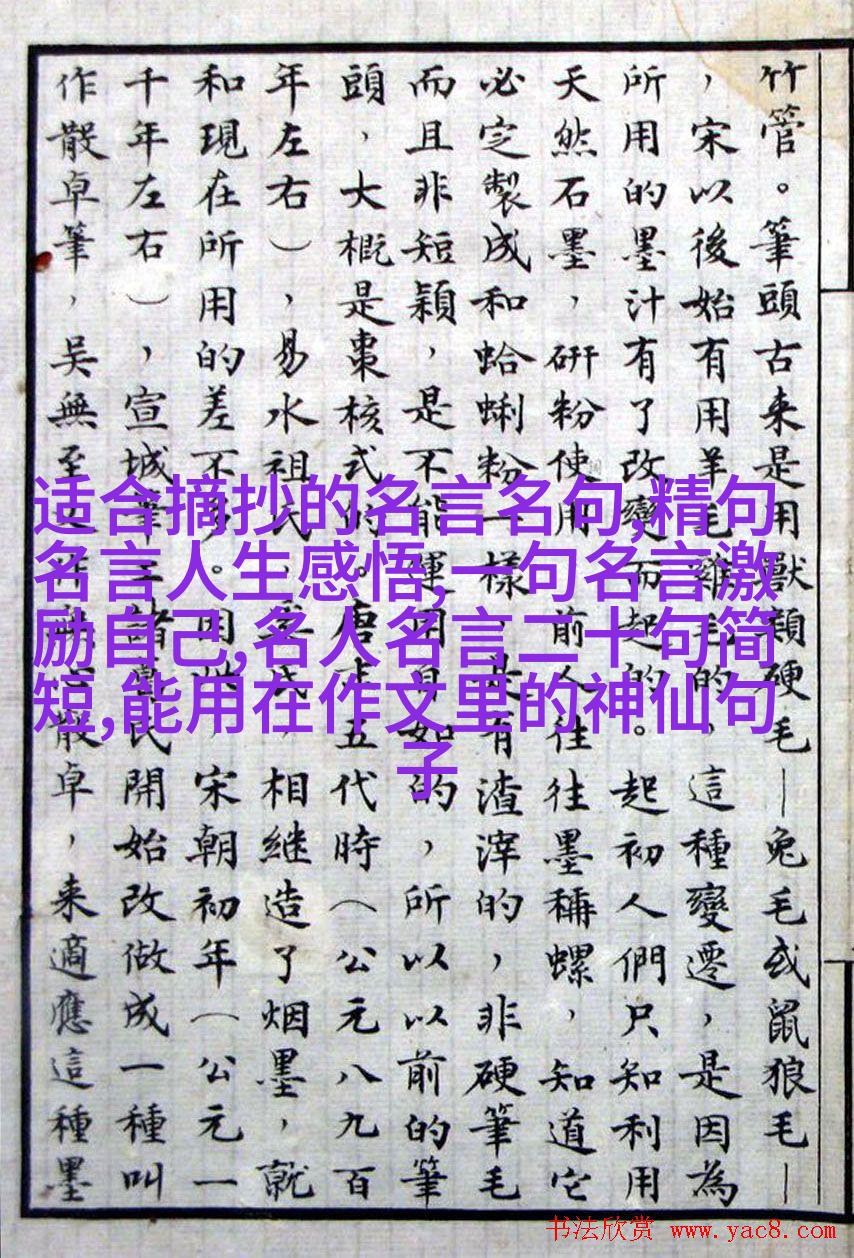 竹管。筆頭古来是用獸穎硬毛—兔毛或鼠狼毛—
，宋以後始有用羊毛雞毛的，這種變遷，是因為
所用的墨汁有了改變而起的。起初人們只知利用
天然石墨，研粉使用，前人往往墨稱螺，知道它
必定製成和蛤蜊粉一樣，是有渣滓的，非硬筆毛
而且非短穎，是不能運用自如的，所以以前的筆
頭，大概是棗核式的。唐末五代時（公元八九百
年左右），易水祖氏、氏，相继造了烟墨，就
和現在所用的差不多。因此，宋朝初年（公元一
千年左右），宣城筆工諸葛氏開始改做成一種叫
作散卓筆，吴無至散卓，来適應這種墨
适合摘抄的名言名句,精句
名言人生感悟,一句名言激
励自己,名人名言二十句简
短,能用在作文里的神仙句
子
书法欣赏 www.yac8.com